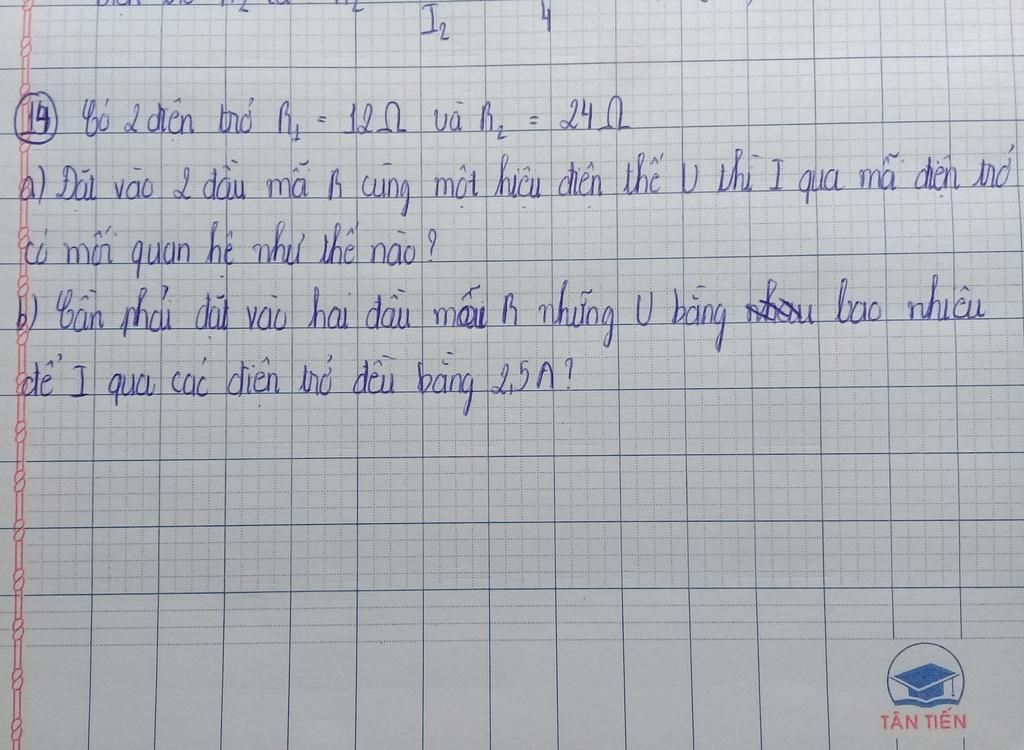 I₂ 4
14) Có 2 điện trở R₁ = 12Ω và R₂ = 24Ω
a) Đặt vào 2 đầu mỗi R cùng một hiệu điện thế U thì I qua mỗi điện trở
có mối quan hệ như thế nào?
b) Cần phải đặt vào hai đầu mỗi R những U bằng bao nhiêu
để I qua các điện trở đều bằng 2,5A?
TÂN TIẾN